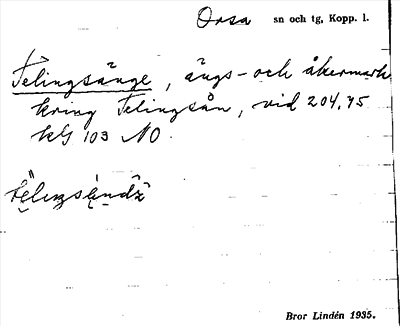 Orsa sn och tg, Kopp. l.
Telingsänge, ängs- och åkermark
kring Telingsån, vid 204,45
kG 103 NO.
Bror Lindén 1935.